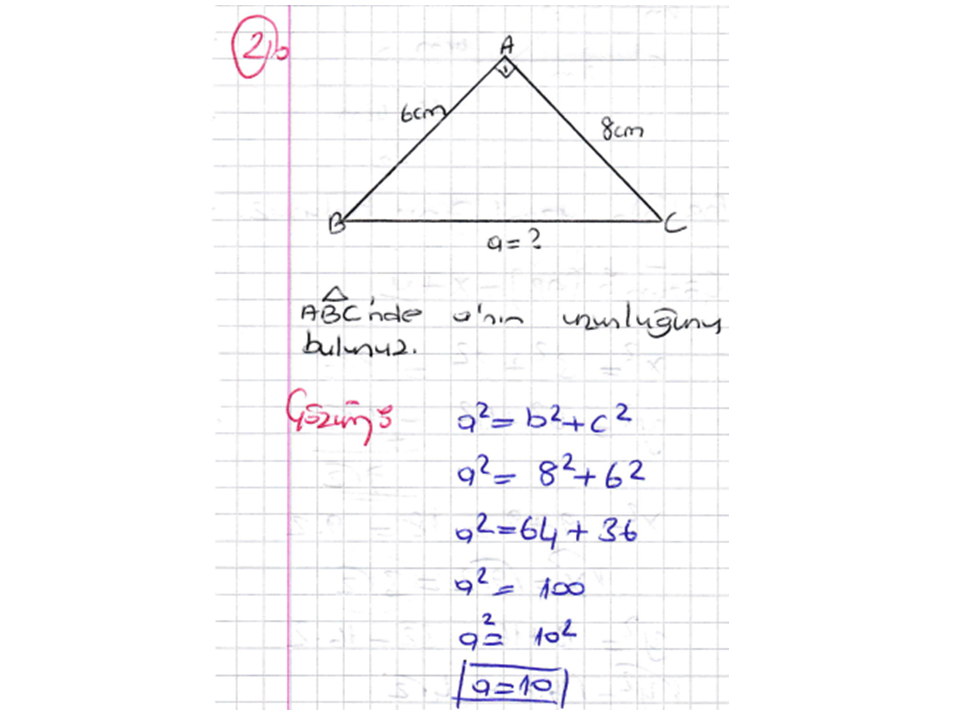 2)
A
6cm
8cm
B
C
a=?
ABC'nde a'nın uzunluğunu
bulunuz.
Çözüm:
a²=b²+c²
a²= 8²+6²
a²=64+36
a²= 100
a²= 10²
a=10